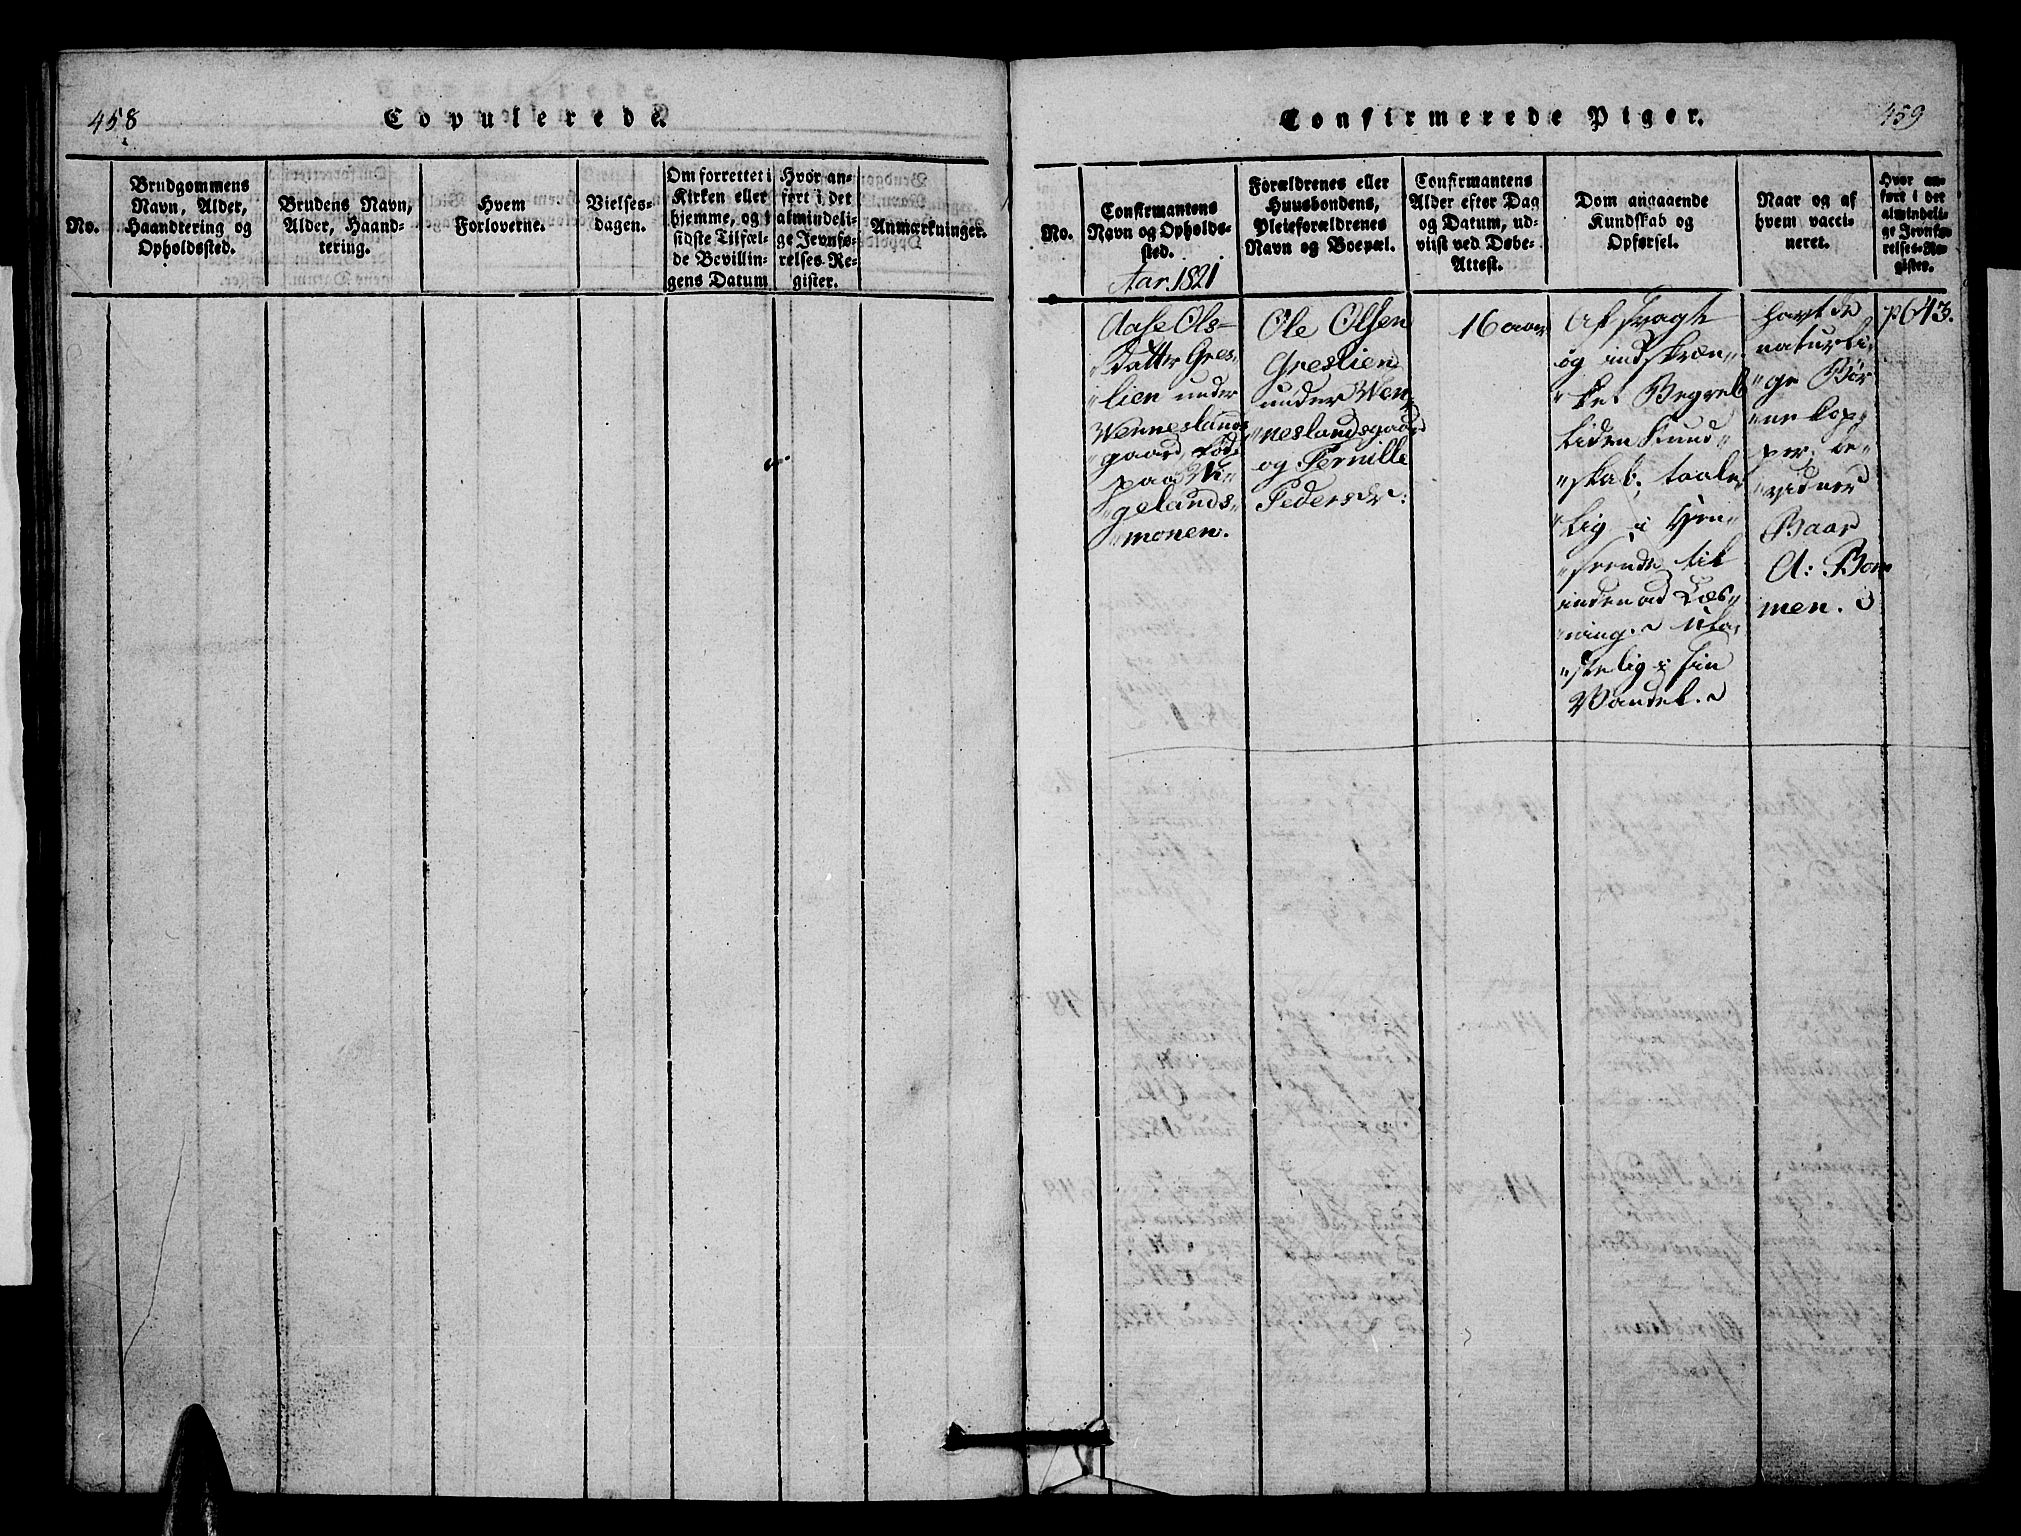 458
Copulerede.
No.
Brudgommens
Navn, Alder,
Haandtering og
Opholdssted.
Brudens Navn,
Alder, Haand-
tering.
Hvem
Forloverne.
Vielses-
dagen.
Om forrettet i
Kirken eller
hjemme, og i
sidste Tilfæl-
de Bevillin-
gens Datum
Hvor an-
ført i det
almindeli-
ge Jevnfø-
relses Re-
gister.
Anmærkninger.
Confirmerede Piger.
459
No.
Confirmantens
Navn og Opholds-
sted.
Aar. 1821
Forældrenes eller
Huusbondens,
Pleieforældrenes
Navn og Boepæl.
Confirmantens
Alder efter Dag
og Datum, ud-
viist ved Døbe-
Attest.
Dom angaaende
Kundskab og
Opførsel.
Naar og af
hvem vacci-
neret.
Hvor an-
ført i det
almindeli-
ge Jevnfø-
relses-Re-
gister.
Aase Ols-
datter Gres-
lien under
Wenneslands
gaard, fød
paa
gelands-
monen.
Ole Olsen
Greslien
under Wen
neslandsgaard
og Pernille
Pedersdr:
16 aar
Af svagt
og indskræn-
ket Begreb
liden Kund-
skab; taale
lig i Hen-
seende til
indenad Læs-
ning. ula-
stelig i sin
Vandel.
havt de
naturli-
ge Bør
ne kop-
per, be-
vidner
Baar
A: Bom
men.
p643.